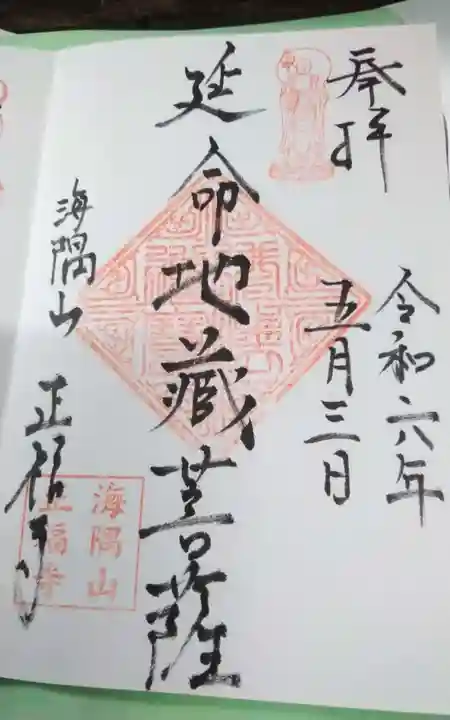 奉拝
令和六年
五月三日
延命地蔵菩薩
海隅山 正福寺
海隅山
正福寺